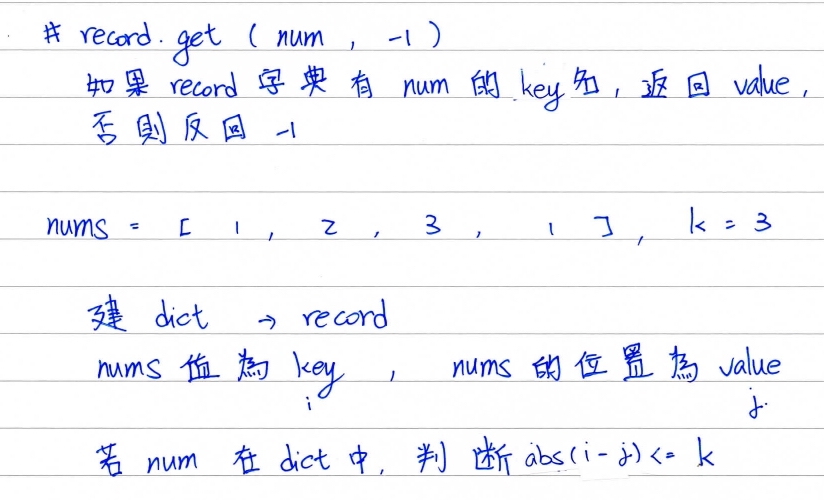 # record.get ( num , -1 )
如果 record 字典有 num 的 key 名, 返回 value,
否則反回 -1
nums = [ 1 , 2 , 3 , 1 ] , k = 3
建 dict → record
nums 值為 key , nums 的位置為 value
i j
若 num 在 dict 中, 判斷 abs(i-j) <= k